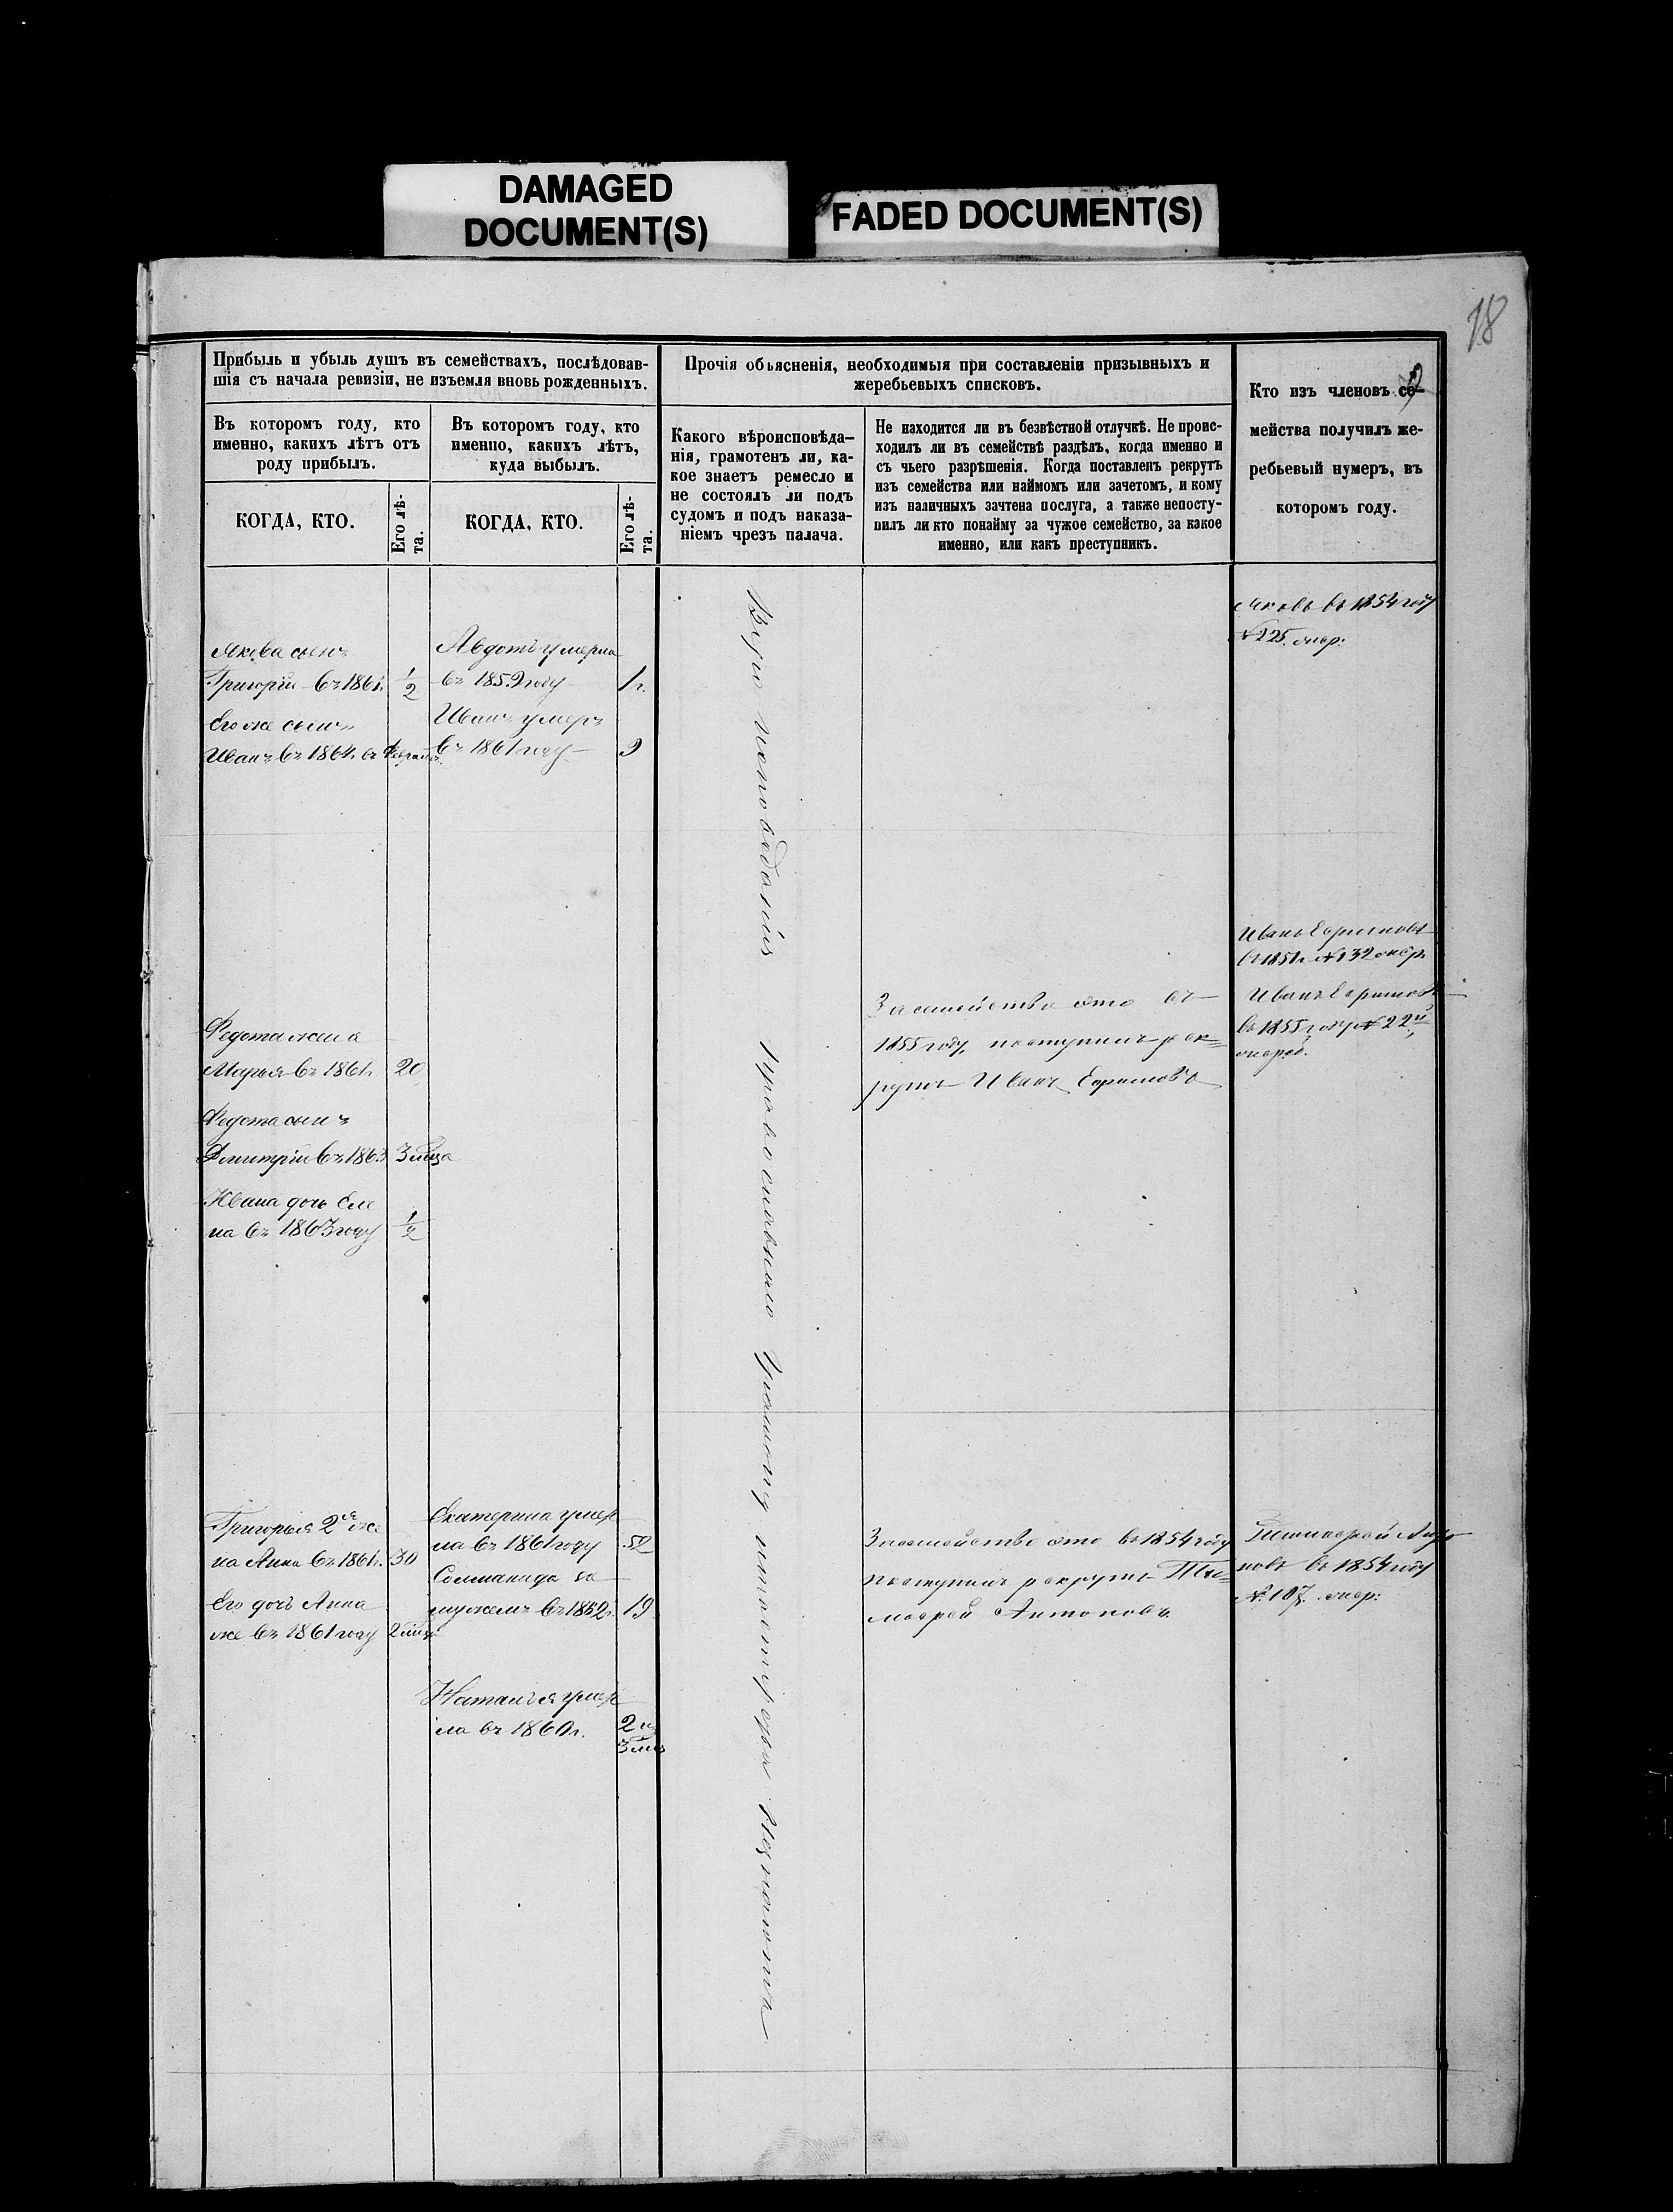 DAMAGED
DOCUMENT(S)
FADED DOCUMENT(S)
18
Прибыль и убыль душъ въ семействахъ, послѣдовав-
шія съ начала ревизіи, не изъемля вновь рожденныхъ.
Прочія объясненія, необходимыя при составленіи призывныхъ и
жеребьевыхъ списковъ.
Кто изъ членовъ се-
мейства получилъ же-
ребьевый нумеръ, въ
которомъ году.
Въ которомъ году, кто
именно, какихъ лѣтъ отъ
роду прибылъ.
Въ которомъ году, кто
именно, какихъ лѣтъ,
куда выбылъ.
Какого вѣроисповѣда-
нія, грамотенъ ли, ка-
кое знаетъ ремесло и
не состоялъ ли подъ
судомъ и подъ наказа-
ніемъ чрезъ палача.
Не находится ли въ безвѣстной отлучкѣ. Не проис-
ходилъ ли въ семействѣ раздѣлъ, когда именно и
съ чьего разрѣшенія. Когда поставленъ рекрутъ
изъ семейства или наймомъ или зачетомъ, и кому
изъ наличныхъ зачтена послуга, а также непосту-
пилъ ли кто понайму за чужое семейство, за какое
именно, или какъ преступникъ.
КОГДА, КТО.
Его лѣ-
та.
КОГДА, КТО.
Его лѣ-
та.
Яковъ въ 1854 году
№ 225 очер:
Якова сынъ
Григорій въ 1861г. 1/2
Его же сынъ
Иванъ въ 1864г. въ Февралѣ
Авдотья умерла
въ 1859 году 1 г.
Иванъ умеръ
въ 1861 году 9
Вѣро исповѣданія православнаго
Иванъ Ефимовъ
въ 1851г. № 132 очер.
Иванъ Ефимовъ
въ 1855 году № 22й
очеред.
За семейство это въ
1855 году, поступилъ рек=
рутъ Иванъ Ефимовъ
Федота жена
Марья въ 1861г. 20
Федота сынъ
Дмитрій въ 1863 3 мца
Ивана дочь Еле
на въ 1863 году 1/2
Григорья 2я же
на Анна въ 1861г. 30
Его дочь Анна
же въ 1861 году 2 мца
Екатерина умер
ла въ 1861 году 52
Соломанида за
мужемъ въ 1852г. 19
Наталья умер
ла въ 1860г. 2 г.
3 мца
За семейство это въ 1854 году
поступилъ рекрутъ Ти=
мофей Антоновъ
Тимофей Анто
новъ въ 1854 году
№ 107. очер: